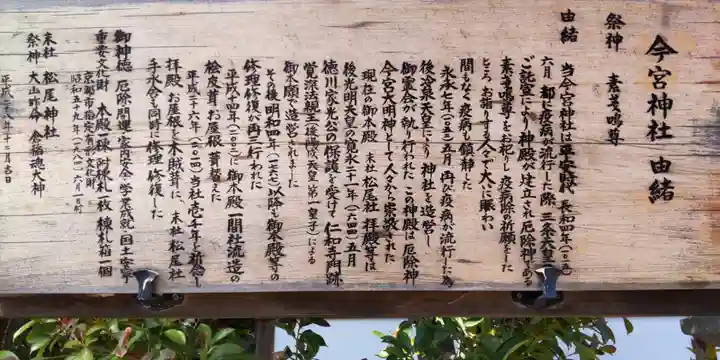 今宮神社 由緒
祭神 素戔嗚尊
由緒
当今宮神社は平安時代 長和四年(一〇一五)
六月 都に疫病が流行した際、三条天皇に
ご託宣により神殿が建立され厄除神である
素戔嗚尊をお祀りし疫病除の祈願をした
ところ、お詣りする人々で大いに賑わい
間もなく疫病も鎮静した
永承七年(一〇五二)五月 再び疫病が流行した為
後冷泉天皇により神社を造営し
御霊会が執り行われた この神殿は厄除神
今宮大明神として人々から崇敬された
現在の御本殿 末社 松尾社 拝殿等は
後光明天皇の寛永二十一年(一六四四)五月
徳川家光公の保護を受けて仁和寺門跡
覚深法親王(後陽成天皇 第一皇子)による
御本願で造営されました
その後 明和四年(一七六七)以降も御本殿等の
修理修復が再三行われた
平成十四年(二〇〇二)に御本殿一間社流造の
桧皮茸お屋根茸替えた
平成二十六年(二〇一四)当社壱千年を祈念し
拝殿 お屋根を木賊茸に、末社 松尾社
手水舎も同時に修理修復した
御神徳 厄除開運 家内安全 学業成就 国土安寧
重要文化財 本殿一棟 附棟札一枚 棟札箱一個
京都市指定有形文化財
昭和五十九年(一九八四)六月一日付
末社 松尾神社
祭神 大山咋命 倉稲魂大神
平成二八年十二月吉日